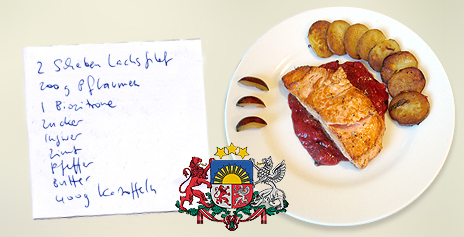 2 Scheiben Lachsfilet
200g Pflaumen
1 Biozitrone
Zucker
Ingwer
Zimt
Pfeffer
Butter
400g Kartoffeln